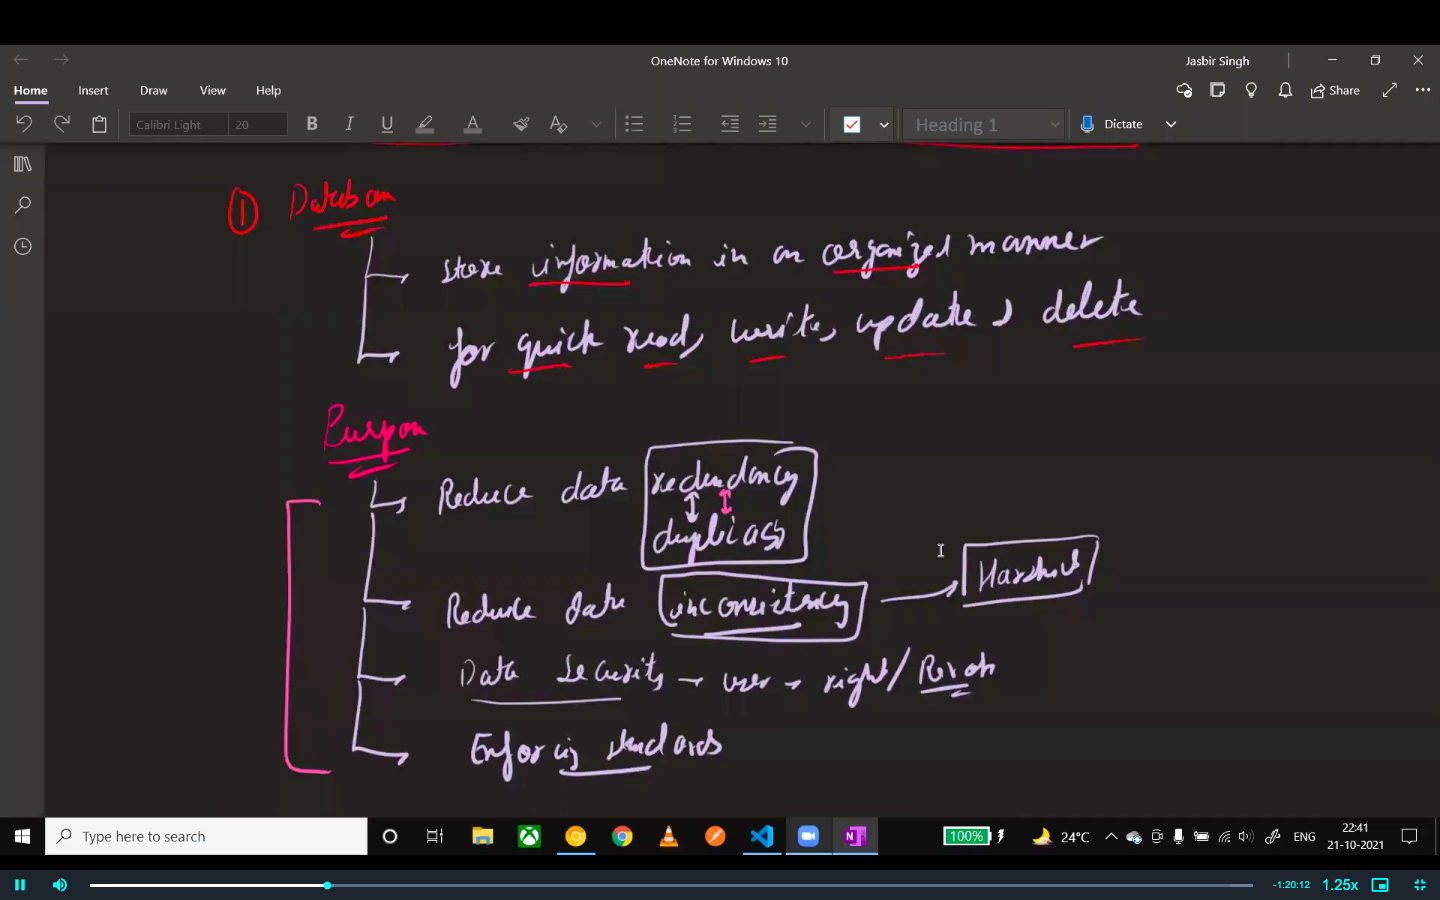 OneNote for Windows 10
Jasbir Singh
Home Insert Draw View Help
Share
Calibri Light 20
B I U A
Heading 1
Dictate
1 Database
Store information in an organized manner
for quick read, write, update, delete
Purpose
Reduce data redundancy
Reduce data inconsistency
Data Security → user → right/
Enforcing standards
Type here to search
100%
24°C
ENG
22:41
21-10-2021
-1:20:12 1.25x